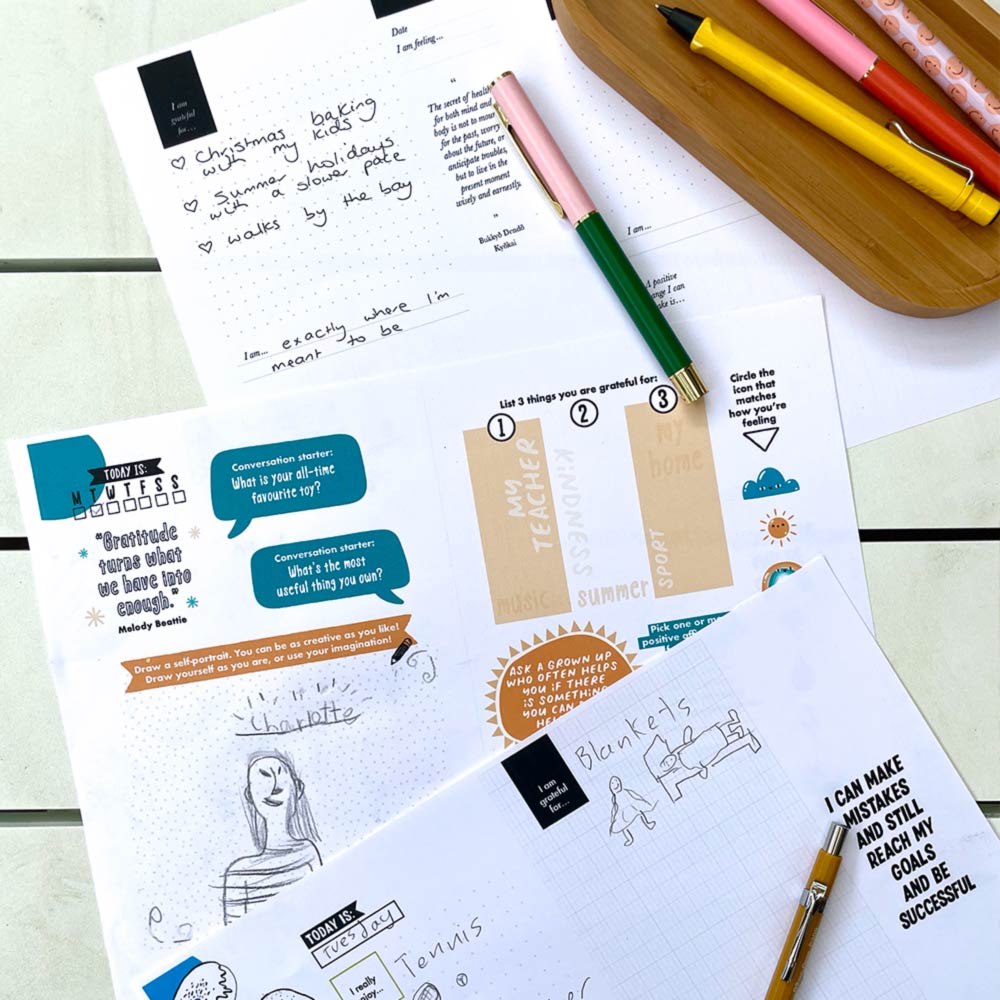 Date
I am feeling...
I am
grateful
for...
♡ Christmas baking
with my kids
♡ Summer holidays
with a slower pace
♡ walks by the bay
“
The secret of health
for both mind and
body is not to mourn
for the past, worry
about the future, or
anticipate troubles,
but to live in the
present moment
wisely and earnestly.
”
Bukkyō Dendō
Kyōkai
I am... exactly where I'm
meant to be
I am...
A positive
I can
is...
TODAY IS:
M T W T F S S
“Gratitude
turns what
we have into
enough.”
Melody Beattie
Conversation starter:
What is your all-time
favourite toy?
Conversation starter:
What's the most
useful thing you own?
Draw a self-portrait. You can be as creative as you like!
Draw yourself as you are, or use your imagination!
Charlotte
List 3 things you are grateful for:
1 2 3
MY
TEACHER
music
KINDNESS
summer
my
home
SPORT
Circle the
icon that
matches
how you're
feeling
ASK A GROWN UP
WHO OFTEN HELPS
YOU IF THERE
IS SOMETHING
YOU CAN
Pick one or
positive
I am
grateful
for...
Blankets
I CAN MAKE
MISTAKES
AND STILL
REACH MY
GOALS
AND BE
SUCCESSFUL
TODAY IS:
Tuesday
I really
Tennis